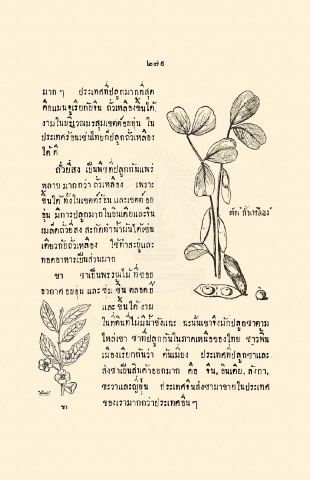 ๒๗๕
มาก ๆ ประเทศที่ปลูกมากที่สุด
คือแมนจูเรียกับจีน ถั่วเหลืองขึ้นได้
งามในบริเวณมรสุมเขตต์อบอุ่น ใน
ประเทศร้อนเช่นไทยก็ปลูกถั่วเหลือง
ได้ดี
ถั่วยี่สง เป็นพืชที่ปลูกกันแพร่
หลายมากกว่าถั่วเหลือง เพราะ
ขึ้นได้ทั้งในเขตต์ร้อน และเขตต์อบ
อุ่น มีการปลูกมากในอินเดียและจีน
เมล็ดถั่วยี่สง สะกัดทำน้ำมันได้เช่น
เดียวกับถั่วเหลือง ใช้ทำสะบู่และ
ทอดอาหารเป็นส่วนมาก
ต้นถั่วเหลือง
ชา ชาเป็นพรรณไม้ที่ชอบ
อากาศอบอุ่น และชุ่มชื้นตลอดปี
และขึ้นได้งาม
ในที่ดินที่ไม่มีน้ำขังแฉะ ฉะนั้นเขาจึงมักปลูกชาตาม
ไหล่เขา ชาที่ปลูกกันในภาคเหนือของไทย ชาวพื้น
เมืองเรียกกันว่า ต้นเมี่ยง ประเทศที่ปลูกชาและ
ส่งชาเป็นสินค้าออกมาก คือ จีน, อินเดีย, ลังกา,
ชะวาและญี่ปุ่น ประเทศจีนส่งชามาขายในประเทศ
ของเรามากกว่าประเทศอื่น ๆ
ชา